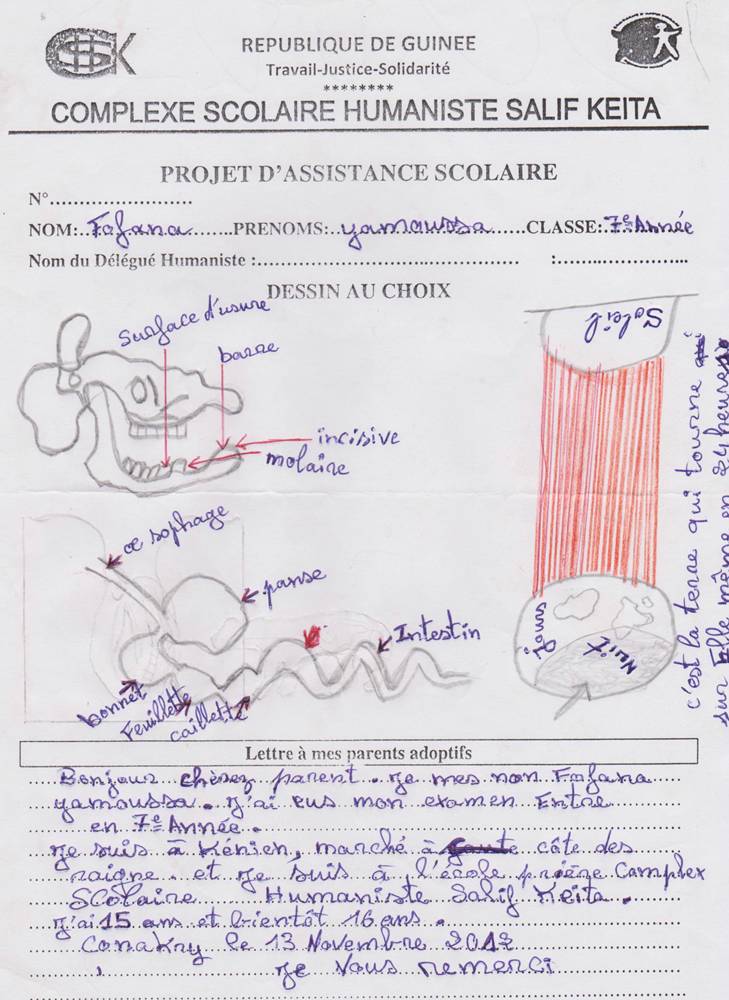 GHSK
REPUBLIQUE DE GUINEE
Travail-Justice-Solidarité
********
COMPLEXE SCOLAIRE HUMANISTE SALIF KEITA
PROJET D'ASSISTANCE SCOLAIRE
N°........................
NOM: Fofana PRENOMS: yamoussa CLASSE: 7e Année
Nom du Délégué Humaniste :
DESSIN AU CHOIX
Surface d'usure
barre
incisive
molaire
Soleil
Jours
Nuit
c'est la terre qui tourne
sur Elle même en 24 heures
oe sophage
panse
Intestin
bonnet
Feuillette
caillette
Lettre à mes parents adoptifs
Bonjour chèrez parent. Je mes non Fofana
yamoussa. J'ai eus mon examen Entre
en 7e Année.
Je suis à Kénien, marché à côte des
raigne. et Je suis à l'école Complex
Scolaire Humaniste Salif Keita.
J'ai 15 ans et bientôt 16 ans.
Conakry le 13 Novembre 2012
Je Vous remerci